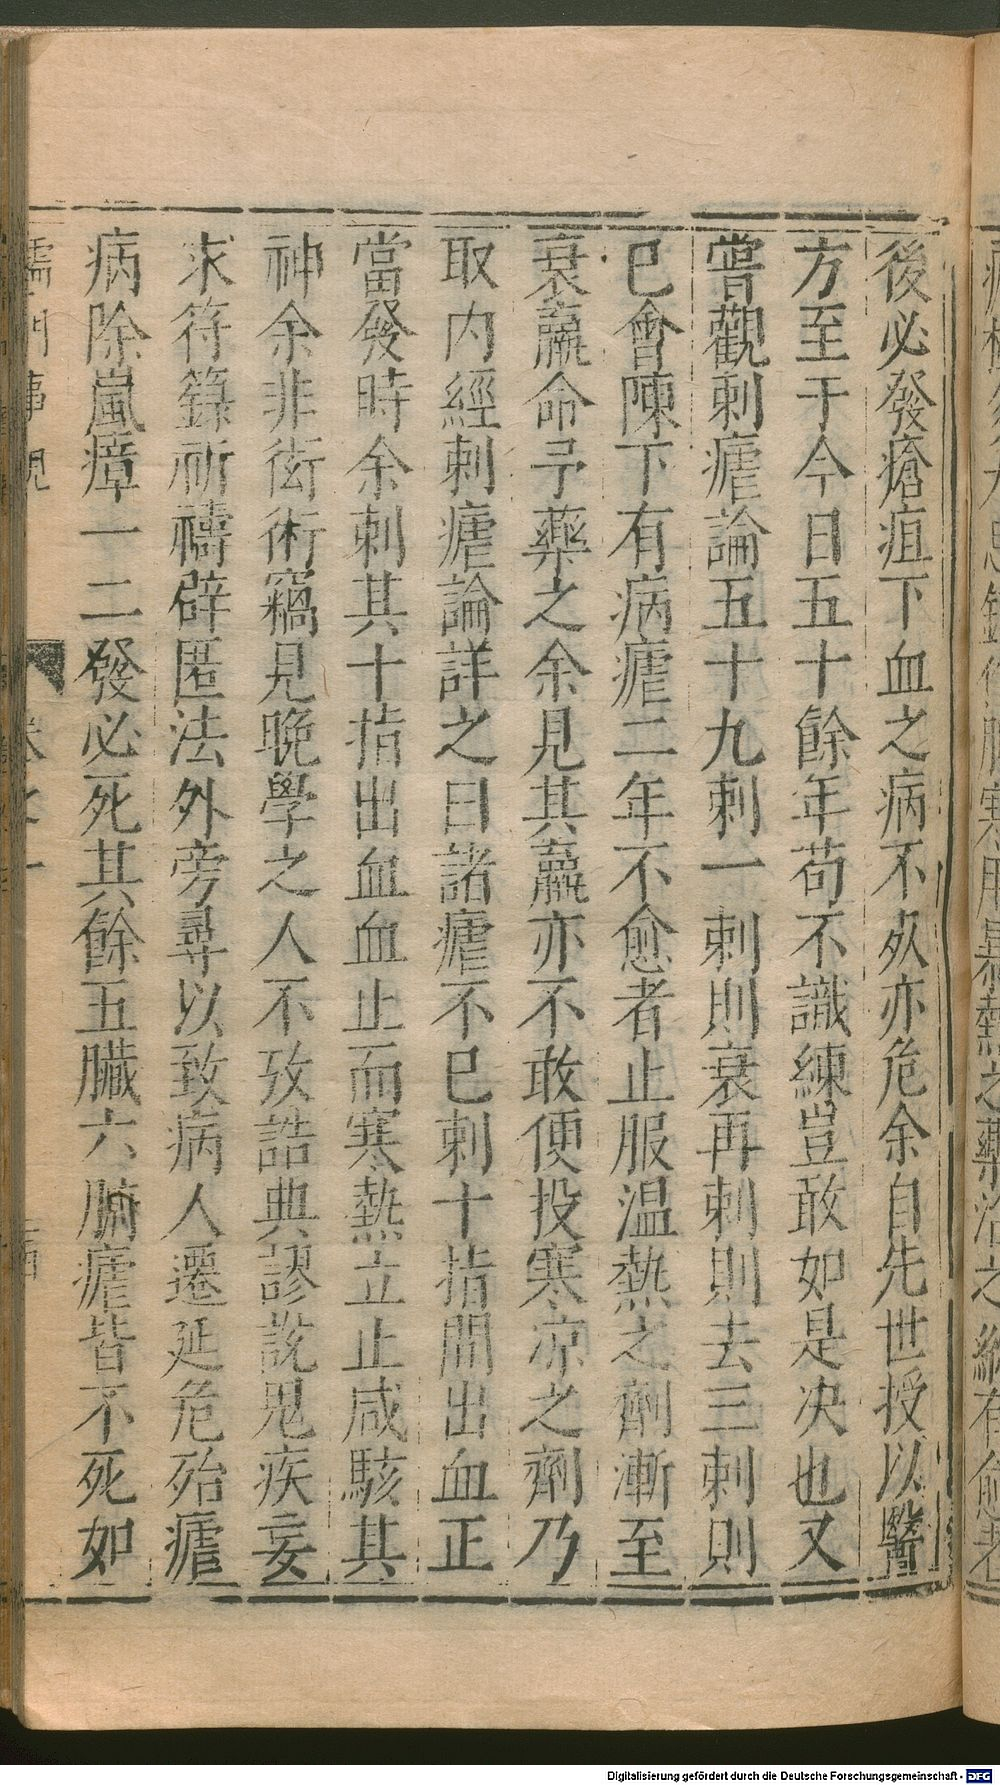 後必發瘡疽下血之病不死亦危余自先世授以醫
方至于今日五十餘年苟不識練豈敢如是决也又
嘗觀刺瘧論五十九刺一刺則衰再刺則去三刺則
已會陳下有病瘧二年不愈者止服温熱之劑漸至
衰羸命予藥之余見其羸亦不敢便投寒凉之劑乃
取内經刺瘧論詳之曰諸瘧不已刺十指間出血正
當發時余刺其十指出血血止而寒熱立止咸駭其
神余非衒術竊見晚學之人不攷誥典謬說鬼疾妄
求符籙祈禱辟匿法外旁尋以致病人遷延危殆瘧
病除嵐瘴一二發必死其餘五臟六腑瘧皆不死如
儒門事親
Digitalisierung gefördert durch die Deutsche Forschungsgemeinschaft - DFG